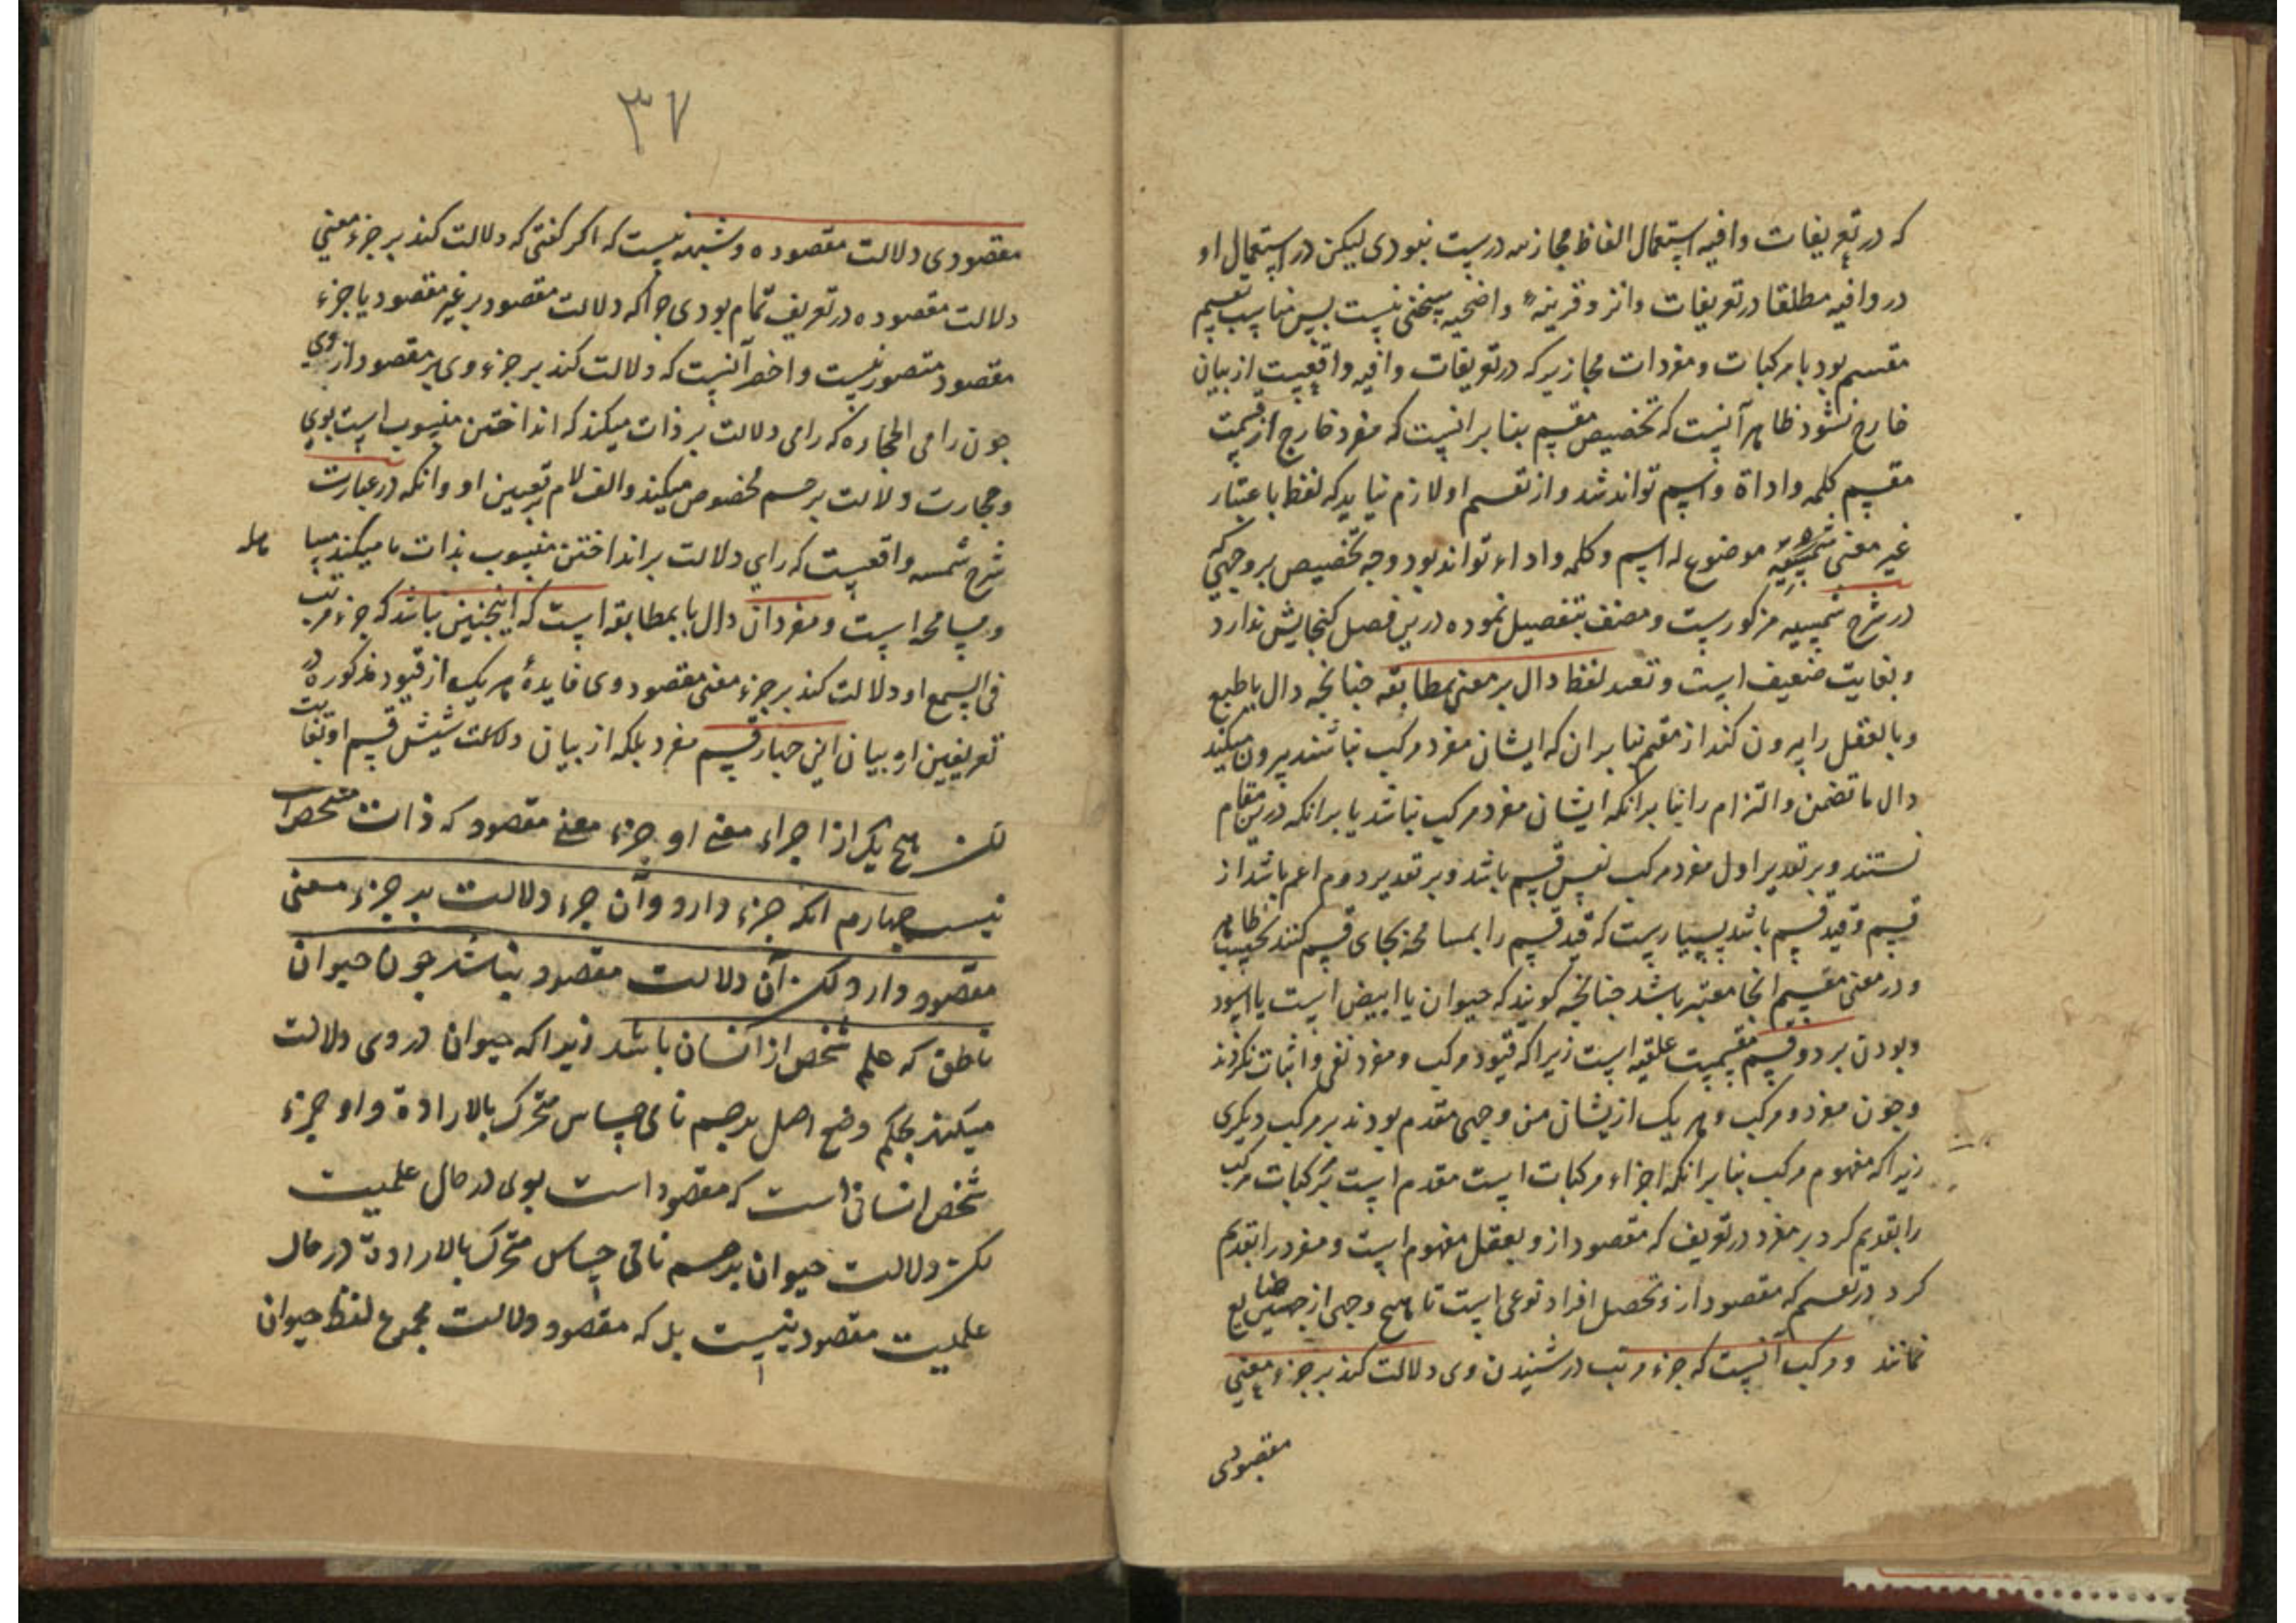 که در تعریفات وافیه استعمال الفاظ مجازیه درست نبودی لیکن در استعمال او
در وافیه مطلقا در تعریفات وانزو قرینهٔ واضحیه سخنی نیست پس مناسب تقسیم
مقسم بود با مرکبات و مفردات مجازیر که در تعریفات وافیه واقعیست از بیان
خارج نشود ظاهر آنست که تخصیص مقسم بنا برانست که مفرد خارج از قسمت
مقسم کلمه و اداة و اسم تواند شد و از تقسیم او لازم نیاید که لفظ باعتبار
غیر معنی موضوع له اسم و کلمه و اداء تواند بود و وجه تخصیص بر وجهی که
در شرح شمسیه مذکورست و مصنف بتفصیل نموده درین فصل کنجایش ندارد
و بغایت ضعیف است و تقید لفظ دال بر معنی بمطابقه جنانجه دال باطبع
و بالعقل را بیرون کند از مقسم بنا بران که ایشان مفرد و مرکب نباشند بیرون میکند
دال با تضمن و التزام را بنا برانکه ایشان مفرد و مرکب نباشد یا برانکه درین مقام
نستند و بر تقدیر اول مفرد و مرکب نفس قسم باشد و بر تقدیر دوم اعم باشد از
قسم و قید قسم باشد بسیارست که قید قسم را بمسامحه بجای قسم کنند بحسب ظاهر
و در معنی مقسم انجا معتبر باشد جنانجه کویند که حیوان یا ابیض است یا اسود
و بودن بر دو قسم علقیه است زیرا که قیود مرکب و مفرد نفی و اثبات نکردند
و جون مفرد و مرکب و هر یک از یشان من وجهی مقدم بودند بر مرکب دیکری
زیرا که مفهوم مرکب بنا برانکه اجزاء مرکبات است مقدم است بر کبات مرکب
را بقدیم کرد بر مفرد در تعریف که مقصود ازو بعقل مفهوم است و مفرد را بقدیم
کرد در تقسیم که مقصود ازو تحصیل افراد نوعی است تا هیچ وجهی از جهتین ضایع
نمانند و مرکب آنست که جزء مرتب در شنیدن وی دلالت کند بر جزء معنی
مقصودی
۳۷
مقصودی دلالت مقصوده و شبهه نیست که اکر کفتی که دلالت کند بر جزء معنی
دلالت مقصوده در تعریف تمام بودی جرا که دلالت مقصود بر غیر مقصود یا جزء
مقصود متصور نیست و اخصر آنست که دلالت کند بر جزء وی بر مقصود از وی
جون رامی الحجاره که رامی دلالت بر ذات میکند که انداختن منسوب است بوی
و حجارت دلالت بر جسم مخصوص میکند و الف لام بر تعیین او و انکه در عبارت
شرح شمسه واقعیست که رای دلالت بر انداختن منسوب بذات ما میکند مبنا
و مسامحه است و مفرد آن دال با بمطابقه است که اینجنین نباشد که جزء مرتب
فی السمع او دلالت کند بر جزء معنی مقصود وی فایدهٔ هر یک از قیود مذکوره در
تعریفین از بیان این جهار قسم مفرد بلکه از بیان دلالت شش قسم او بغایت
لکن هیچ یک از اجراء معنی او جزء معنی مقصود که ذات مشخص است
نیست جهارم انکه جزء دارد وآن جزء دلالت بر جزء معنی
مقصود دارد لکن آن دلالت مقصود نباشد جون حیوان
ناطق که علم شخص از انسان باشد زیرا که حیوان در وی دلالت
میکند بحکم وضع اصل بر جسم نامی حساس متحرک بالاراده و او جزء
شخص انسانی است که مقصود است بوی در حال علمیت
لکن دلالت حیوان بر جسم نامی حساس متحرک بالاراده در حال
علمیت مقصود نیست بل که مقصود دلالت مجموع لفظ حیوان